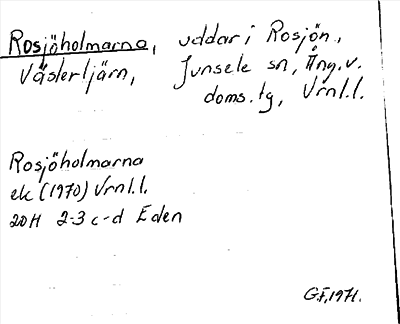 Rosjöholmarna, uddar i Rosjön,
Västertjärn, Junsele sn, Ång.v.
doms.tg, Vrnl.l.
Rosjöholmarna
ek (1970) Vrnl.l.
20H 2-3 c-d Eden
G.F, 1971.